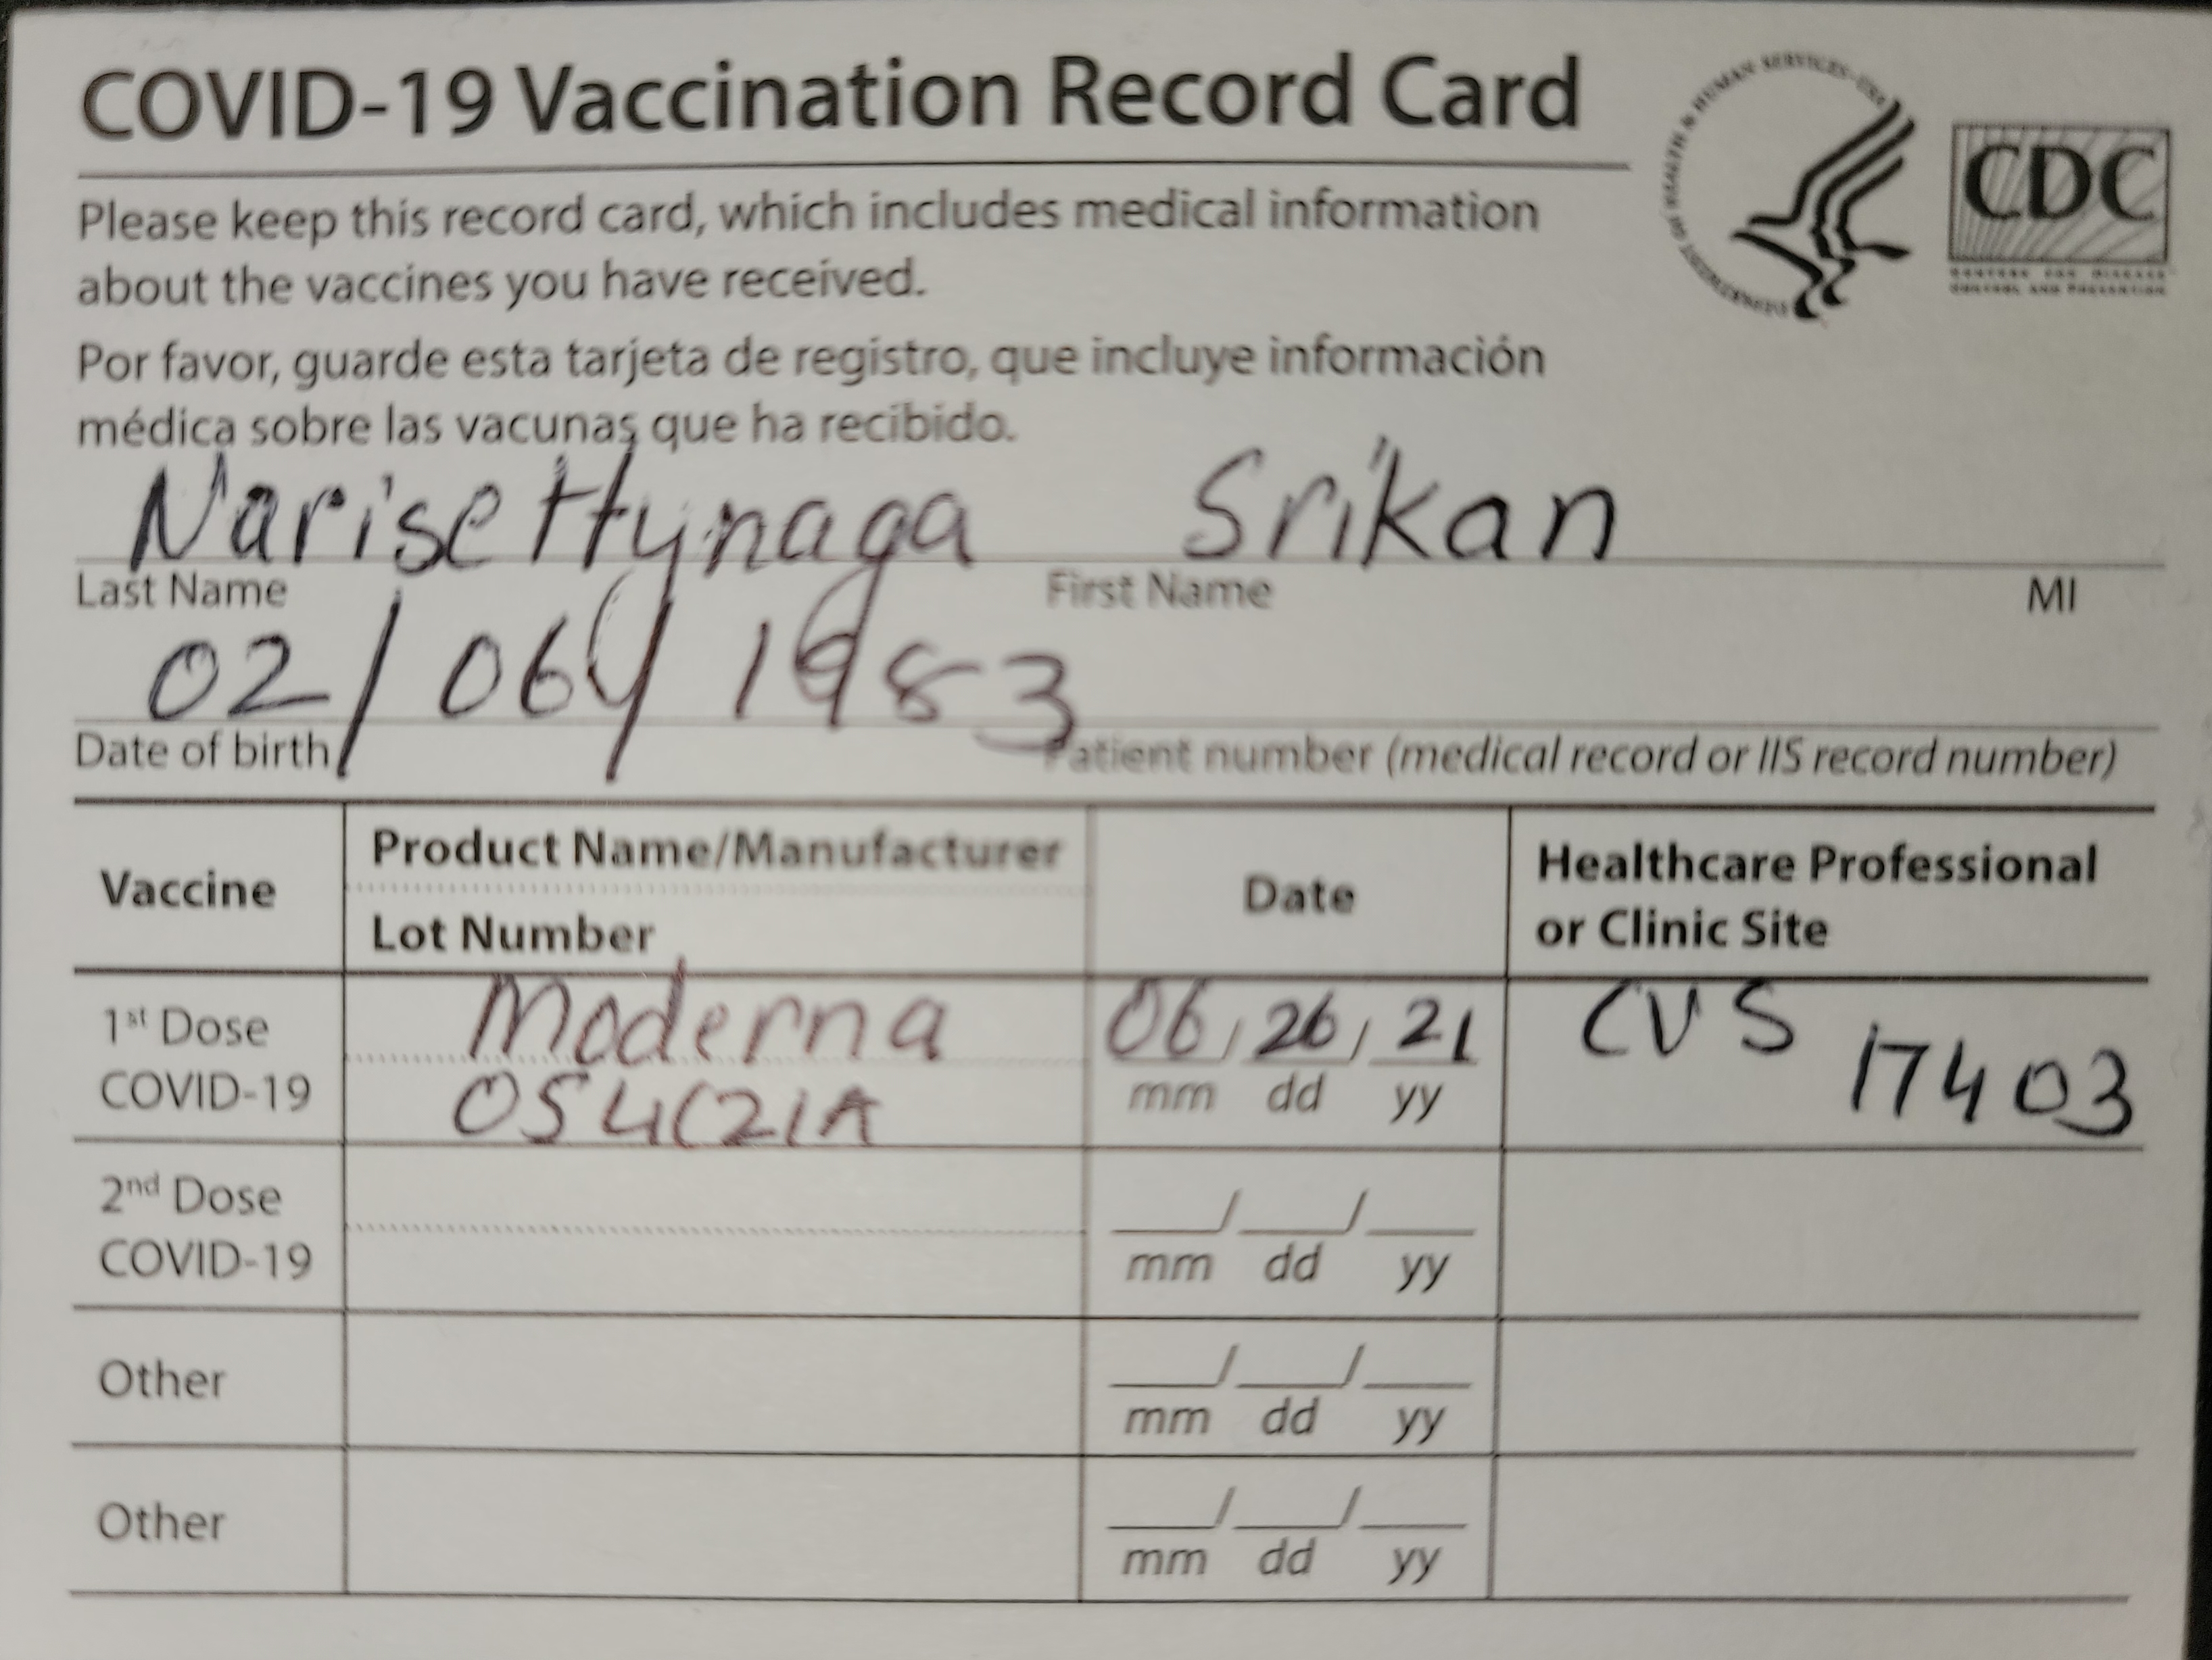 COVID-19 Vaccination Record Card
DEPARTMENT OF HEALTH & HUMAN SERVICES · USA
CDC
CENTERS FOR DISEASE
CONTROL AND PREVENTION
Please keep this record card, which includes medical information
about the vaccines you have received.
Por favor, guarde esta tarjeta de registro, que incluye información
médica sobre las vacunas que ha recibido.
Narisettynaga Srikan
Last Name First Name MI
02/06/1983
Date of birth Patient number (medical record or IIS record number)
Vaccine Product Name/Manufacturer Date Healthcare Professional
Lot Number or Clinic Site
1st Dose Moderna 06/26/21 CVS 17403
COVID-19 054C21A mm dd yy
2nd Dose / /
COVID-19 mm dd yy
Other / /
mm dd yy
Other / /
mm dd yy